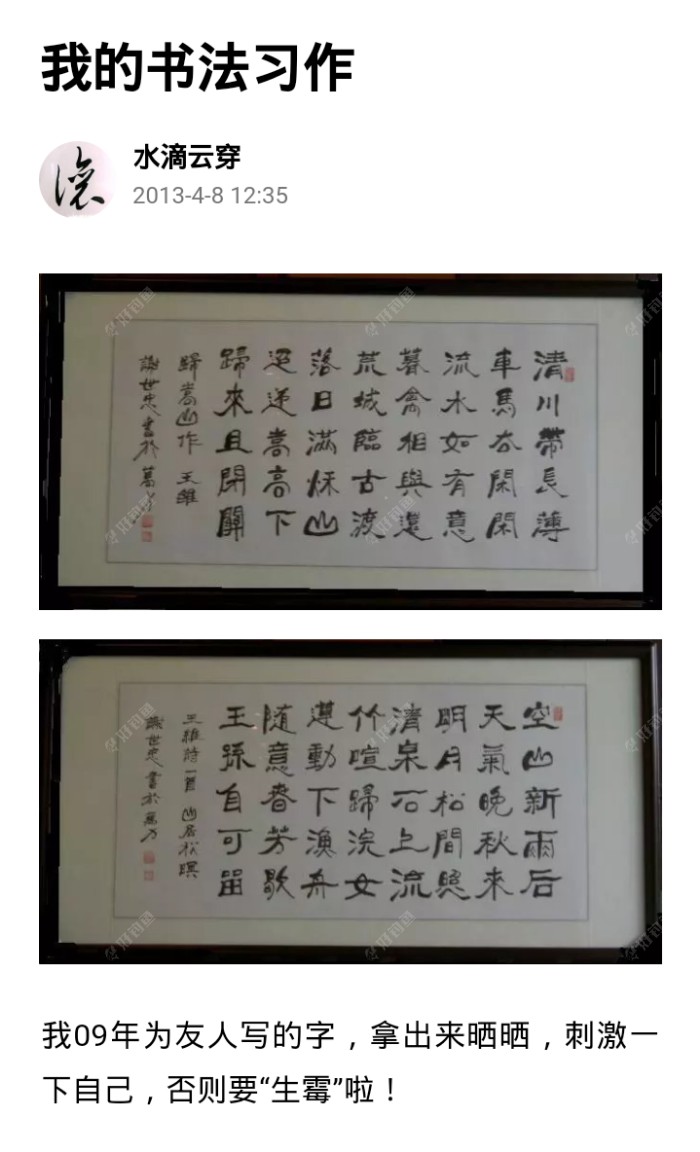 我的书法习作
水滴云穿
2013-4-8 12:35
清川帶長薄
車馬去閑閑
流水如有意
暮禽相與還
荒城臨古渡
落日滿秌山
迢遞嵩高下
歸來且閉關
歸嵩山作 王維
謝世忠書於萬
空山新雨后
天氣晚秋来
明月松間照
清泉石上流
竹喧歸浣女
蓮動下漁舟
随意春芳歇
王孫自可留
王維詩一首 山居秋暝
謝世忠書於萬乃
我09年为友人写的字，拿出来晒晒，刺激一
下自己，否则要“生霉”啦！